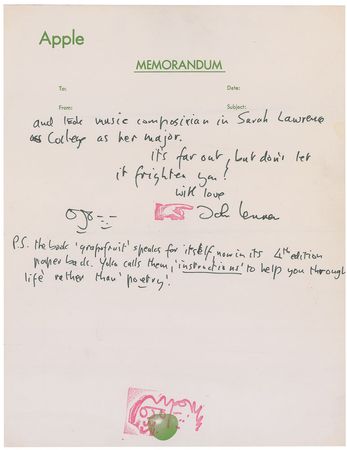 Apple
MEMORANDUM
To: Date:
From: Subject:
and took music composition in Sarah Lawrence
College as her major.
it's far out, but don't let
it frighten you!
with love
John Lennon
P.S. the book 'grapefruit' speaks for itself now in its 4th edition
paper back. Yoko calls them, 'instructions' to help you through
life rather than 'poetry'.